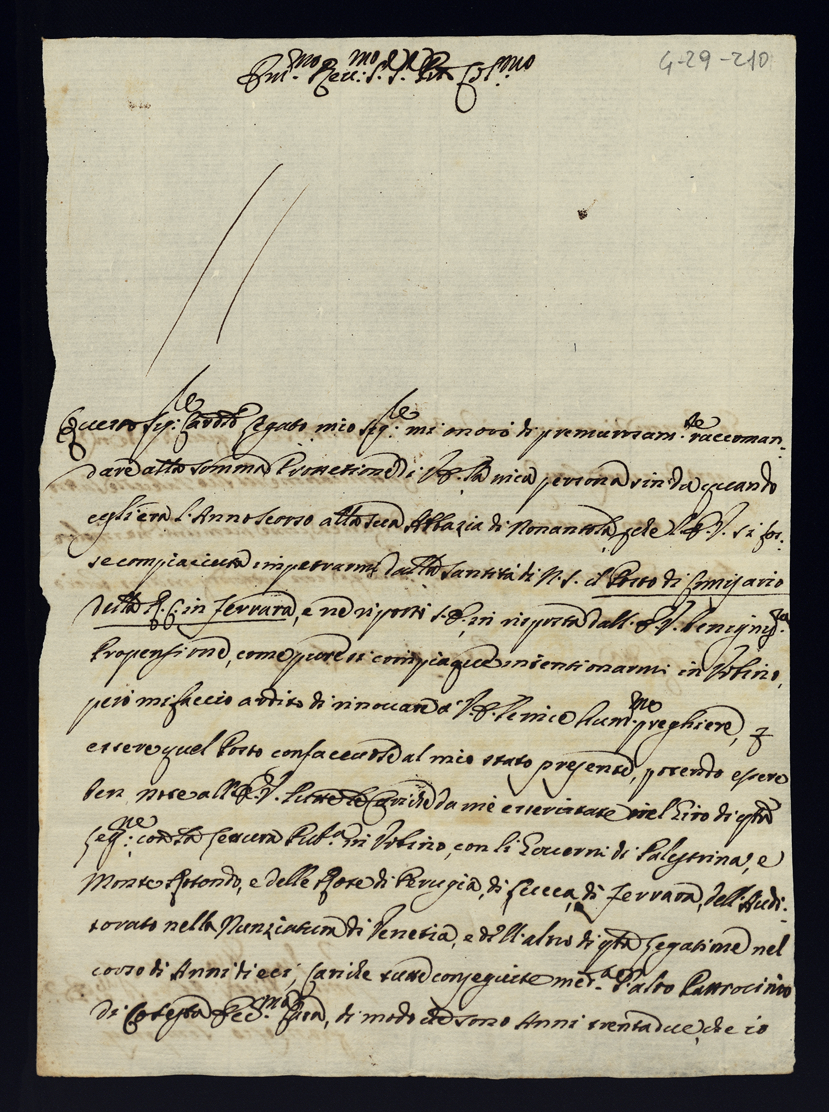 4-29-210
Em.mo Rev.mo S.r S.r P.ne Col.mo
Questo Sig.r Card.le Legato mio Sig.re mi onorò di premurosam.te raccoman-
dare alla somma Protezione di V.E. la mia persona sin da quando
egli era l'Anno scorso alla sua Abbazia di Nonantola, che l'E.V. si fos-
se compiaciuta impetrarmi dalla Santità di N.S. il Posto di Comissario
della R.C. in Ferrara, e ne riportò S.E. in risposta dall'E.V. benignis.ma
Propensione, come pure si compiacque intentionarmi in Urbino,
però mi faccio ardito di rinovare a V.E. le mie hum.me preghiere, p
essere quel Posto confaccevole al mio stato presente, potendo essere
ben note all'E.V. tutte le Cariche da me essercitate nel Giro di q.ta
Leg.ne con la Lettura Pub.a in Urbino, con li Governi di Palestrina, e
Monte Rotondo, e delle Rote di Perugia, di Lucca, di Ferrara, dell'Audi-
torato nella Nunziatura di Venetia, e dell'altro di q.ta Legatione nel
corso di Anni dieci, Cariche tutte conseguite med.e l'alto Patrocinio
di Cotesta Ecc.ma Casa, di modo che sono Anni trentadue, che io